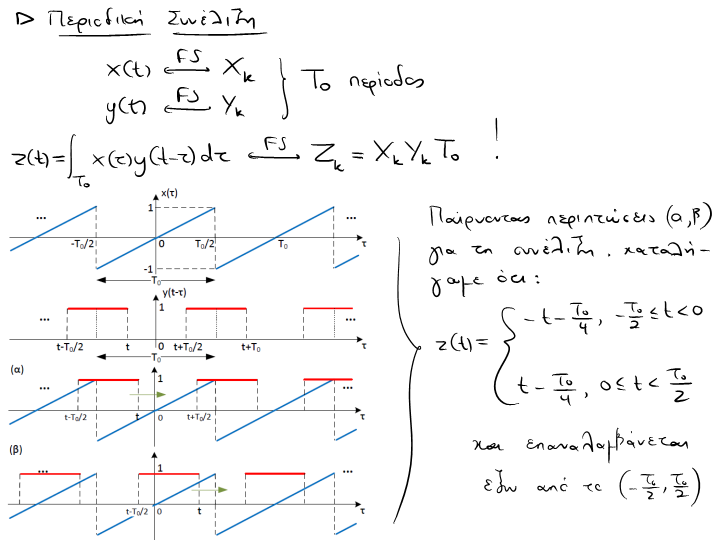 ▷ Περιοδική Συνέλιξη
x(t) ⟷FS X_k
y(t) ⟷FS Y_k } T₀ περίοδος
z(t) = ∫_{T₀} x(τ)y(t-τ)dτ ⟷FS Z_k = X_k Y_k T₀ !
x(τ)
... 1 ...
-T₀/2 0 T₀/2 T₀ τ
-1
T₀
y(t-τ)
... 1 ...
t-T₀/2 t 0 t+T₀/2 t+T₀ τ
T₀
(α)
... 1 ...
t-T₀/2 t 0 t+T₀/2 τ
(β)
... 1 ...
t-T₀/2 0 t τ
Παίρνοντας περιπτώσεις (α,β)
για τη συνέλιξη, καταλή-
γαμε ότι:
z(t) = { -t - T₀/4, -T₀/2 ≤ t < 0
t - T₀/4, 0 ≤ t < T₀/2
και επαναλαμβάνεται
έξω από το (-T₀/2, T₀/2)